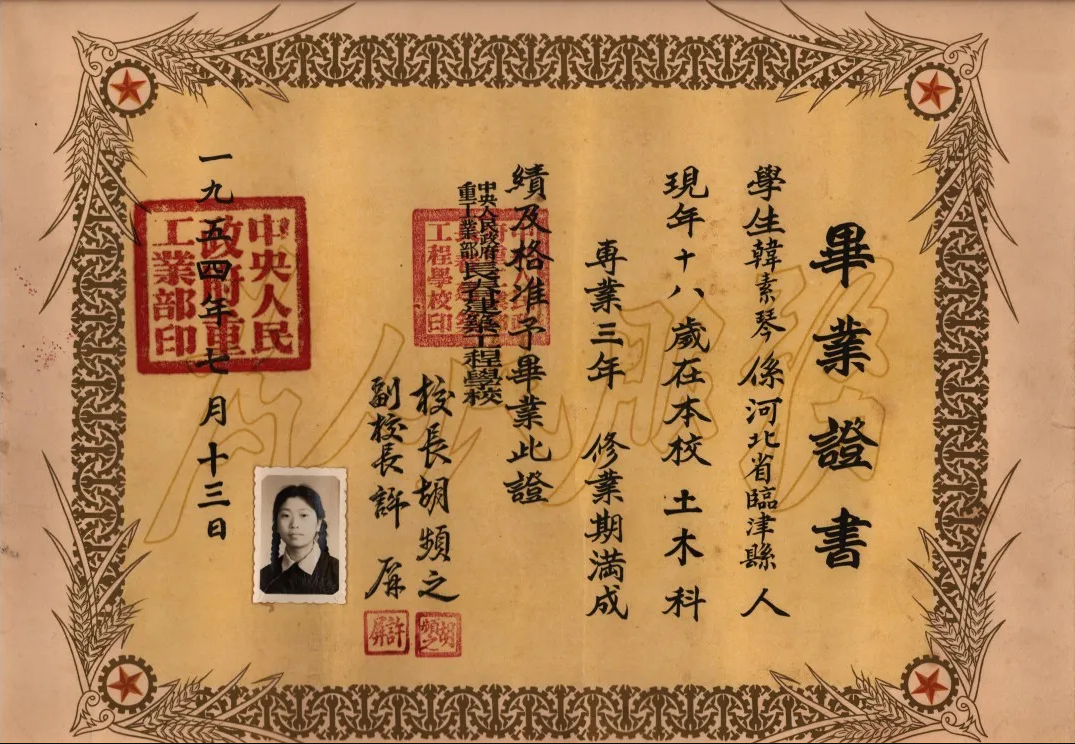 畢業證書
學生韓素琴係河北省臨津縣人
現年十八歲在本校土木科
專業三年 修業期滿成
績及格准予畢業此證
中央人民政府
重工業部
長春建築工程學校
工程學校印
校長胡頻之
副校長許屏
胡頻之
許屏
一九五四年七月十三日
中央人民
政府重
工業部印
為人民服務